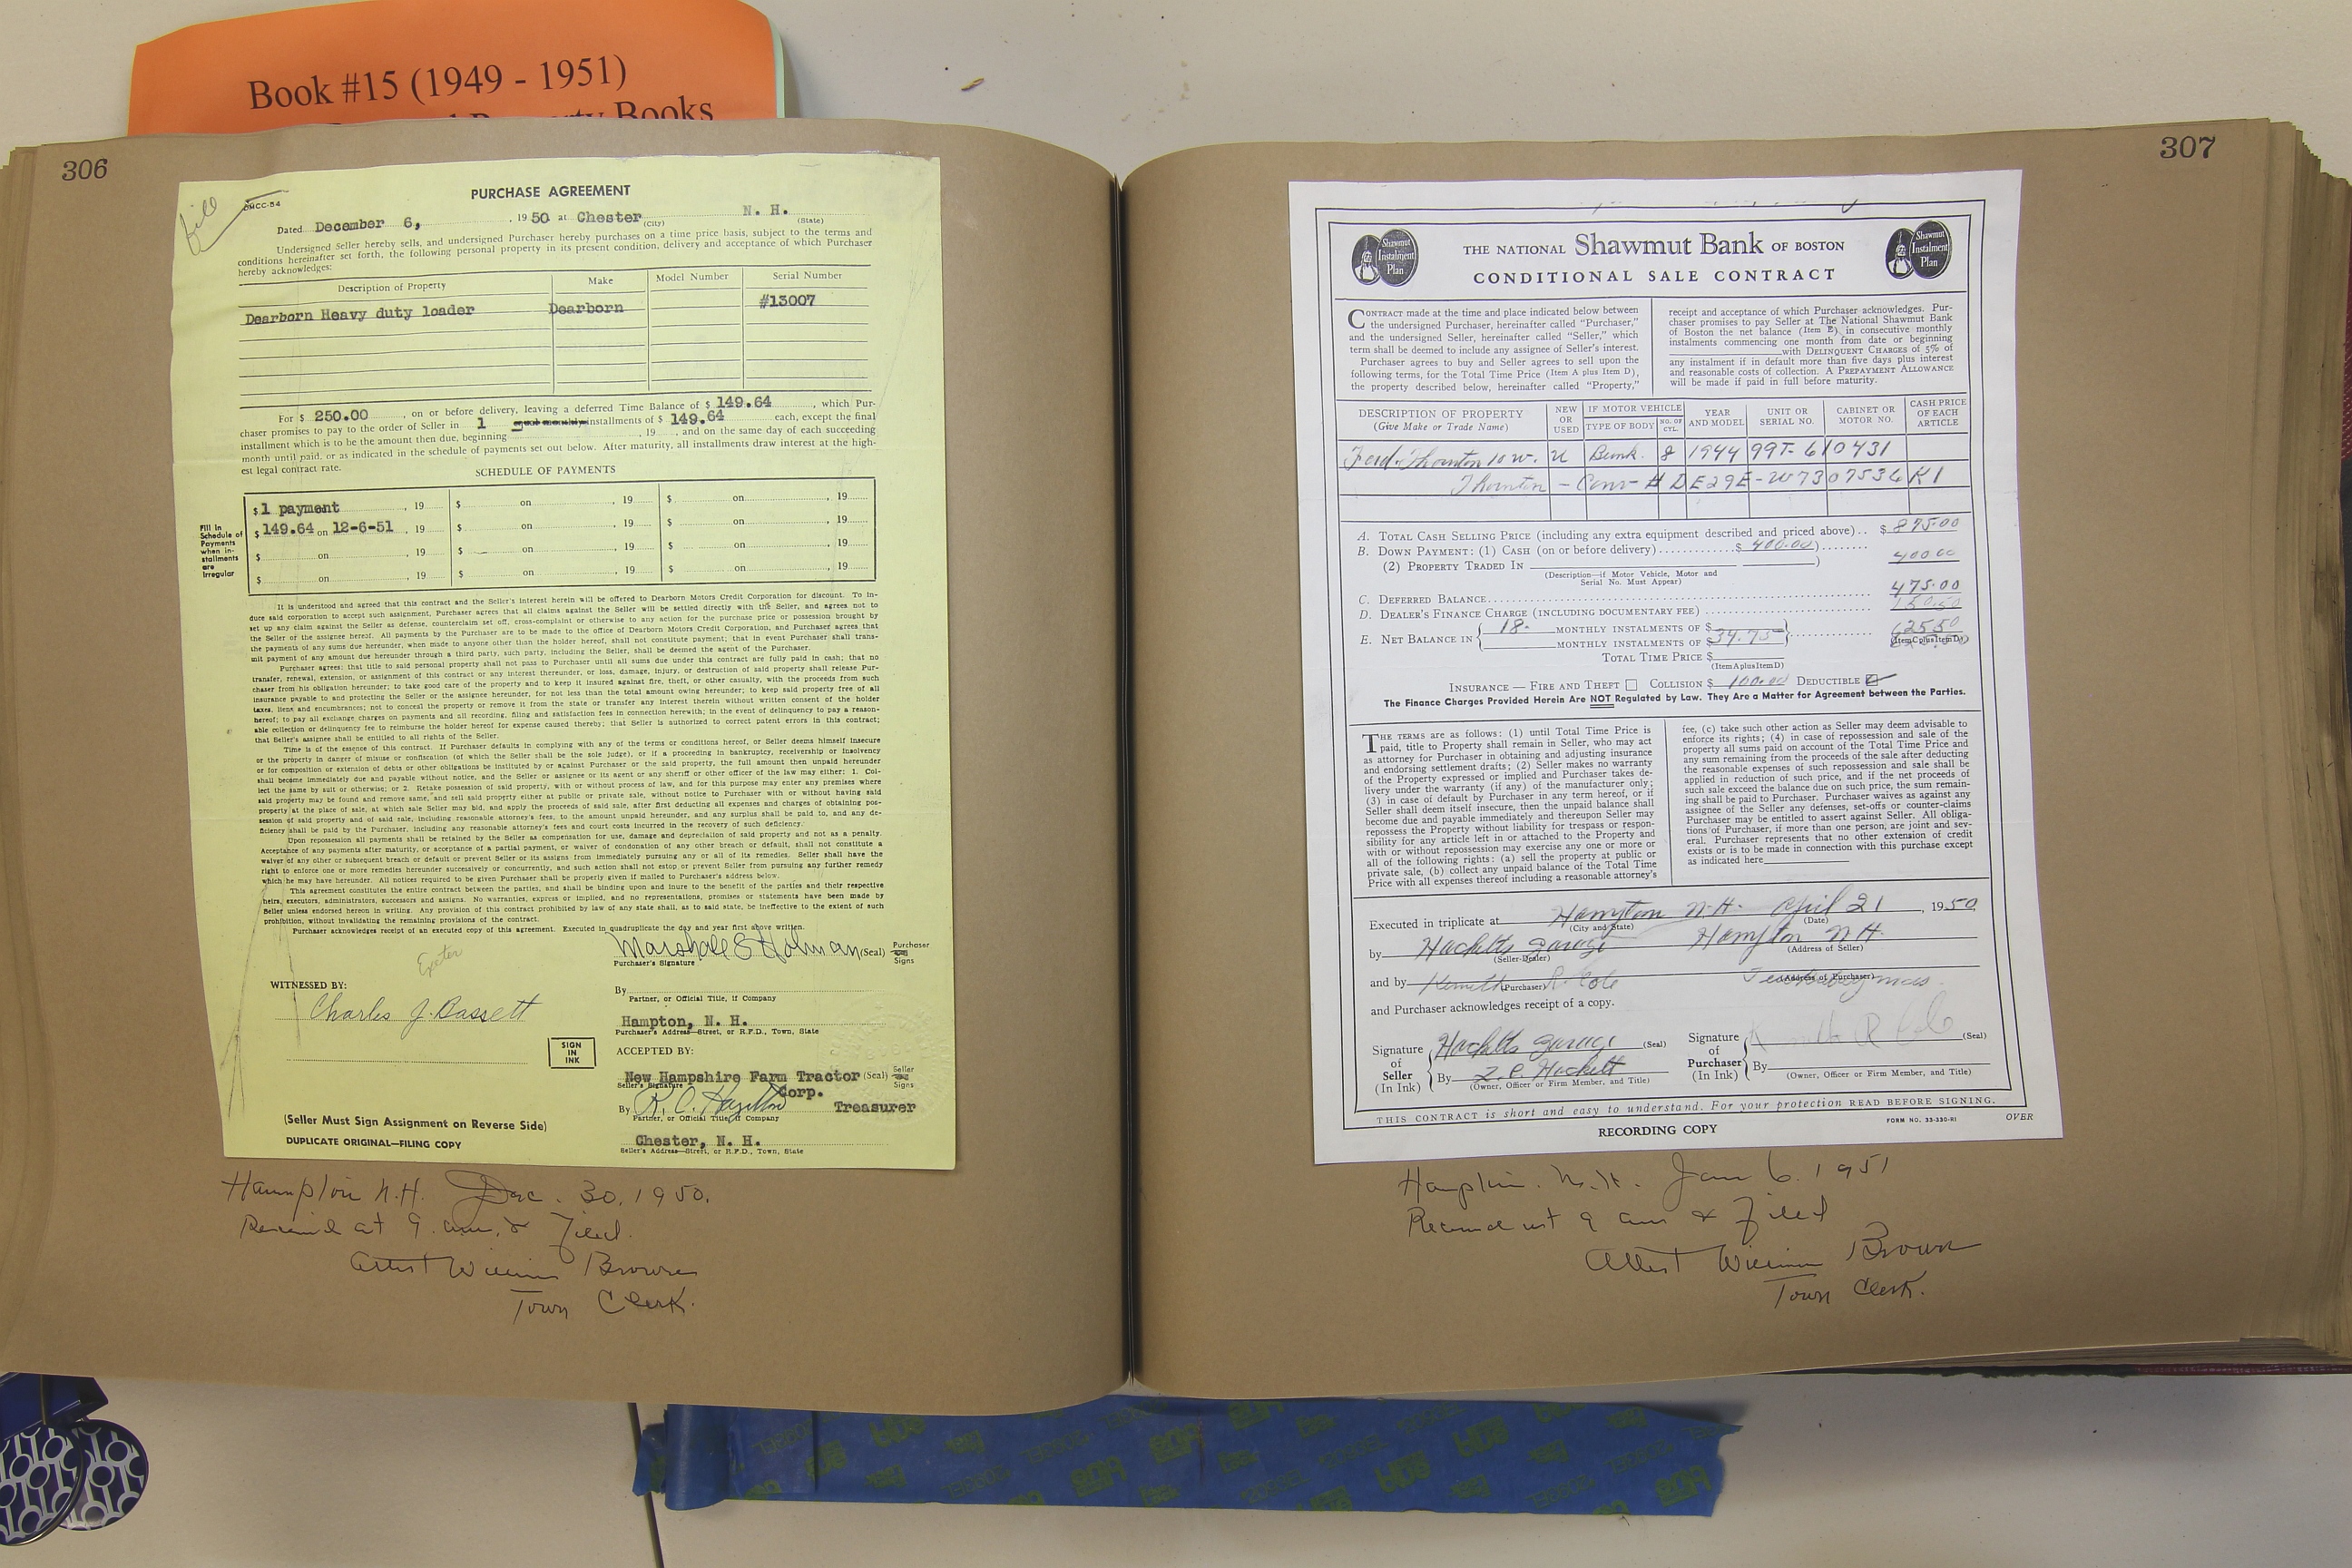 Book #15 (1949 - 1951)
306
fill
DMCC-54
PURCHASE AGREEMENT
Dated December 6, , 19 50 at Chester N. H.
(City) (State)
Undersigned Seller hereby sells, and undersigned Purchaser hereby purchases on a time price basis, subject to the terms and
conditions hereinafter set forth, the following personal property in its present condition, delivery and acceptance of which Purchaser
hereby acknowledges:
Description of Property Make Model Number Serial Number
Dearborn Heavy duty loader Dearborn #13007
For $ 250.00 , on or before delivery, leaving a deferred Time Balance of $ 149.64 , which Pur-
chaser promises to pay to the order of Seller in 1 equal monthly installments of $ 149.64 each, except the final
installment which is to be the amount then due, beginning , 19 , and on the same day of each succeeding
month until paid, or as indicated in the schedule of payments set out below. After maturity, all installments draw interest at the high-
est legal contract rate.
SCHEDULE OF PAYMENTS
Fill in
Schedule of
Payments
when in-
stallments
are
Irregular
$ 1 payment , 19 $ on , 19 $ on , 19
$ 149.64 on 12-6-51 , 19 $ on , 19 $ on , 19
$ on , 19 $ on , 19 $ on , 19
$ on , 19 $ on , 19 $ on , 19
It is understood and agreed that this contract and the Seller's interest herein will be offered to Dearborn Motors Credit Corporation for discount. To in-
duce said corporation to accept such assignment, Purchaser agrees that all claims against the Seller will be settled directly with the Seller, and agrees not to
set up any claim against the Seller as defense, counterclaim set off, cross-complaint or otherwise to any action for the purchase price or possession brought by
the Seller or the assignee hereof. All payments by the Purchaser are to be made to the office of Dearborn Motors Credit Corporation, and Purchaser agrees that
the payments of any sums due hereunder, when made to anyone other than the holder hereof, shall not constitute payment; that in event Purchaser shall trans-
mit payment of any amount due hereunder through a third party, such party, including the Seller, shall be deemed the agent of the Purchaser.
Purchaser agrees: that title to said personal property shall not pass to Purchaser until all sums due under this contract are fully paid in cash; that no
transfer, renewal, extension, or assignment of this contract or any interest thereunder, or loss, damage, injury, or destruction of said property shall release Pur-
chaser from his obligation hereunder; to take good care of the property and to keep it insured against fire, theft, or other casualty, with the proceeds from such
insurance payable to and protecting the Seller or the assignee hereof, for not less than the total amount owing hereunder; to keep said property free of all
taxes, liens and encumbrances; not to conceal the property or remove it from the state or transfer any interest therein without written consent of the holder
hereof; to pay all exchange charges on payments and all recording, filing and satisfaction fees in connection herewith; in the event of delinquency to pay a reason-
able collection or delinquency fee to reimburse the holder hereof for expense caused thereby; that Seller is authorized to correct patent errors in this contract;
that Seller's assignee shall be entitled to all rights of the Seller.
Time is of the essence of this contract. If Purchaser defaults in complying with any of the terms or conditions hereof, or Seller deems himself insecure
or the property in danger of misuse or confiscation (of which the Seller shall be the sole judge), or if a proceeding in bankruptcy, receivership or insolvency
or for composition or extension of debts or other obligations be instituted by or against Purchaser or the said property, the full amount then unpaid hereunder
shall become immediately due and payable without notice, and the Seller or assignee or its agent or any sheriff or other officer of the law may either: 1. Col-
lect the same by suit or otherwise; or 2. Retake possession of said property, with or without process of law, and for this purpose may enter any premises where
said property may be found and remove same, and sell said property either at public or private sale, without notice to Purchaser with or without having said
property at the place of sale, at which sale Seller may bid, and apply the proceeds of said sale, after first deducting all expenses and charges of obtaining pos-
session of said property and of said rale, including reasonable attorney's fees, to the amount unpaid hereunder, and any surplus shall be paid to, and any de-
ficiency shall be paid by the Purchaser, including any reasonable attorney's fees and court costs incurred in the recovery of such deficiency.
Upon repossession all payments shall be retained by the Seller as compensation for use, damage and depreciation of said property and not as a penalty.
Acceptance of any payments after maturity, or acceptance of a partial payment, or waiver of condonation of any other breach or default, shall not constitute a
waiver of any other or subsequent breach or default or prevent Seller or its assigns from immediately pursuing any or all of its remedies. Seller shall have the
right to enforce one or more remedies hereunder successively or concurrently, and such action shall not estop or prevent Seller from pursuing any further remedy
which he may have hereunder. All notices required to be given Purchaser shall be properly given if mailed to Purchaser's address below.
This agreement constitutes the entire contract between the parties, and shall be binding upon and inure to the benefit of the parties and their respective
heirs, executors, administrators, successors and assigns. No warranties, express or implied, and no representations, promises or statements have been made by
Seller unless endorsed hereon in writing. Any provision of this contract prohibited by law of any state shall, as to said state, be ineffective to the extent of such
prohibition, without invalidating the remaining provisions of the contract.
Purchaser acknowledges receipt of an executed copy of this agreement. Executed in quadruplicate the day and year first above written.
Exeter
Marshall S Holman (Seal) Purchaser Signs
Purchaser's Signature
WITNESSED BY:
Charles J. Bassett
By
Partner, or Official Title, if Company
Hampton, N. H.
Purchaser's Address—Street, or R.F.D., Town, State
SIGN
IN
INK
ACCEPTED BY:
New Hampshire Farm Tractor (Seal) Seller Signs
Seller's Signature Corp.
By R. C. Hazelton Treasurer
Partner, or Official Title, if Company
Chester, N. H.
Seller's Address—Street, or R.F.D., Town, State
(Seller Must Sign Assignment on Reverse Side)
DUPLICATE ORIGINAL—FILING COPY
Hampton N.H. Dec. 30, 1950.
Received at 9. am. & Filed.
Attest William Brown
Town Clerk.
307
Shawmut
Instalment
Plan
THE NATIONAL Shawmut Bank OF BOSTON
CONDITIONAL SALE CONTRACT
Shawmut
Instalment
Plan
CONTRACT made at the time and place indicated below between
the undersigned Purchaser, hereinafter called "Purchaser,"
and the undersigned Seller, hereinafter called "Seller," which
term shall be deemed to include any assignee of Seller's interest.
Purchaser agrees to buy and Seller agrees to sell upon the
following terms, for the Total Time Price (Item A plus Item D),
the property described below, hereinafter called "Property,"
receipt and acceptance of which Purchaser acknowledges. Pur-
chaser promises to pay Seller at The National Shawmut Bank
of Boston the net balance (Item E) in consecutive monthly
instalments commencing one month from date or beginning
with DELINQUENT CHARGES of 5% of
any instalment if in default more than five days plus interest
and reasonable costs of collection. A PREPAYMENT ALLOWANCE
will be made if paid in full before maturity.
DESCRIPTION OF PROPERTY (Give Make or Trade Name) NEW OR USED IF MOTOR VEHICLE TYPE OF BODY NO. OF CYL. YEAR AND MODEL UNIT OR SERIAL NO. CABINET OR MOTOR NO. CASH PRICE OF EACH ARTICLE
Ford-Thornton 10 W. U 8 1944 99T-610431
Thornton - Conv - # DE29E-W7307536K1
A. TOTAL CASH SELLING PRICE (including any extra equipment described and priced above).. $ 875.00
B. DOWN PAYMENT: (1) CASH (on or before delivery)............$ 400.00)........ 400 00
(2) PROPERTY TRADED IN )
(Description—if Motor Vehicle, Motor and
Serial No. Must Appear)
C. DEFERRED BALANCE 475.00
D. DEALER'S FINANCE CHARGE (INCLUDING DOCUMENTARY FEE) 150.50
E. NET BALANCE IN 18 MONTHLY INSTALMENTS OF $ 625.50
MONTHLY INSTALMENTS OF $ 34.75 (Item C plus Item D)
TOTAL TIME PRICE $
(Item A plus Item D)
INSURANCE — FIRE AND THEFT COLLISION $ 100.00 DEDUCTIBLE
The Finance Charges Provided Herein Are NOT Regulated by Law. They Are a Matter for Agreement between the Parties.
THE TERMS are as follows: (1) until Total Time Price is
paid, title to Property shall remain in Seller, who may act
as attorney for Purchaser in obtaining and adjusting insurance
and endorsing settlement drafts; (2) Seller makes no warranty
of the Property expressed or implied and Purchaser takes de-
livery under the warranty (if any) of the manufacturer only;
(3) in case of default by Purchaser in any term hereof, or if
Seller shall deem itself insecure, then the unpaid balance shall
become due and payable immediately and thereupon Seller may
repossess the Property without liability for trespass or respon-
sibility for any article left in or attached to the Property and
with or without repossession may exercise any one or more or
all of the following rights: (a) sell the property at public or
private sale, (b) collect any unpaid balance of the Total Time
Price with all expenses thereof including a reasonable attorney's
fee, (c) take such other action as Seller may deem advisable to
enforce its rights; (4) in case of repossession and sale of the
property all sums paid on account of the Total Time Price and
any sum remaining from the proceeds of the sale after deducting
the reasonable expenses of such repossession and sale shall be
applied in reduction of such price, and if the net proceeds of
such sale exceed the balance due on such price, the sum remain-
ing shall be paid to Purchaser. Purchaser waives as against any
assignee of the Seller any defenses, set-offs or counter-claims
Purchaser may be entitled to assert against Seller. All obliga-
tions of Purchaser, if more than one person, are joint and sev-
eral. Purchaser represents that no other extension of credit
exists or is to be made in connection with this purchase except
as indicated here
Executed in triplicate at Hampton N.H. April 21 , 1950
(City and State) (Date)
by Hacketts Garage Hampton N.H.
(Seller-Dealer) (Address of Seller)
and by Kenneth R. Cole Tewksbury Mass.
(Purchaser) (Address of Purchaser)
and Purchaser acknowledges receipt of a copy.
Signature of Seller (In Ink) Hacketts Garage (Seal)
By Z.C. Hackett
(Owner, Officer or Firm Member, and Title)
Signature of Purchaser (In Ink) Kenneth R Cole (Seal)
By
(Owner, Officer or Firm Member, and Title)
THIS CONTRACT is short and easy to understand. For your protection READ BEFORE SIGNING.
RECORDING COPY
FORM NO. 33-330-RI
OVER
Hampton. N.H. Jan 6. 1951
Received at 9 am & Filed
Attest William Brown
Town Clerk.